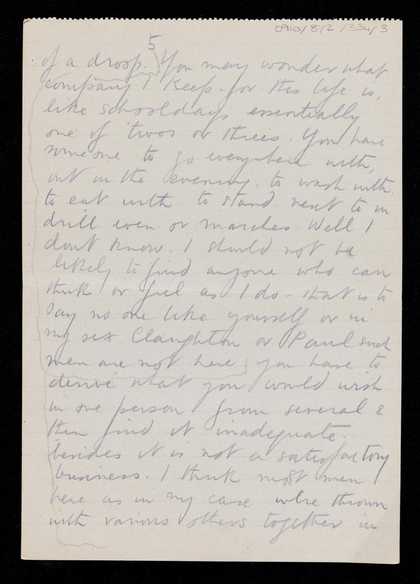 5
of a droop. You may wonder what
company I keep for this life is,
like schooldays essentially
one of twos or threes. You have
someone to go everywhere with,
out in the evening, to wash with
to eat with to stand next to in
drill even or marches. Well I
dont know. I should not be
likely to find anyone who can
think or feel as I do - that is to
say no one like yourself or in
my sex Claughton or Paul such
men are not here, you have to
derive what you would wish
in one person from several &
then find it inadequate
besides it is not a satisfactory
business. I think most men
here as in my case were thrown
with various others together in